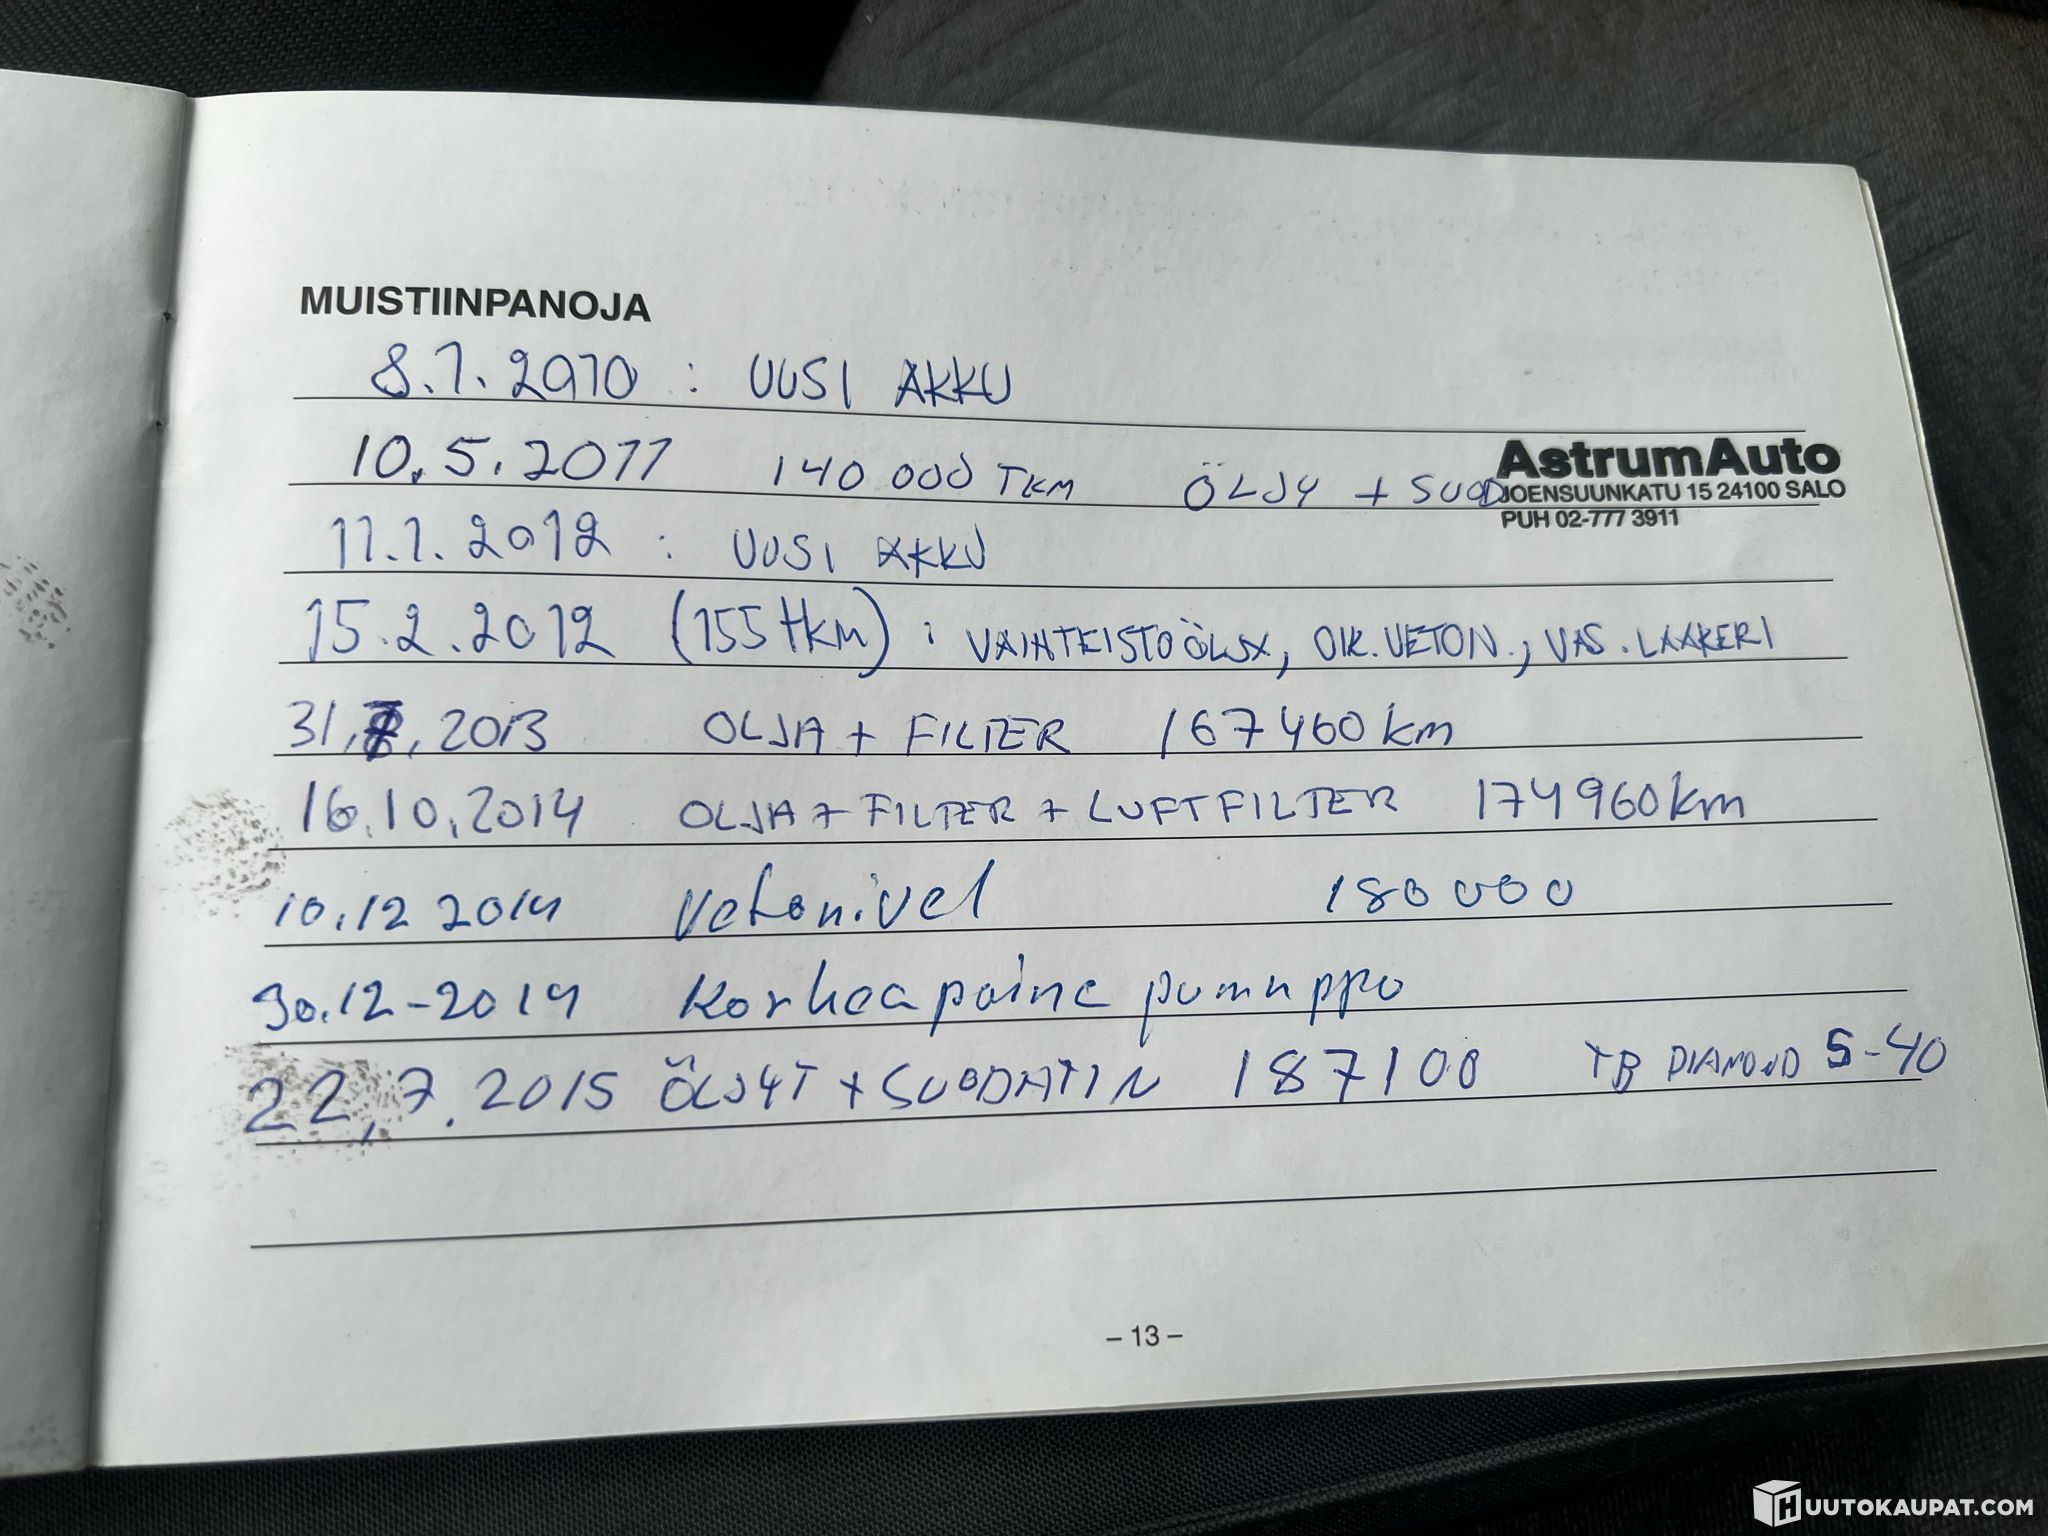 MUISTIINPANOJA
8.1.2010 : UUSI AKKU
10.5.2011 140 000 TKM ÖLJY + SUOD
AstrumAuto
JOENSUUNKATU 15 24100 SALO
PUH 02-777 3911
11.1.2012 : UUSI AKKU
15.2.2012 (155tkm) : VAIHTEISTOÖLJY, OIK. VETON., VAS. LAAKERI
31.7.2013 OLJA + FILTER 167460 km
16.10.2014 OLJA + FILTER + LUFTFILTER 174960 km
10.12 2014 Vetonivel 180 000
30.12-2014 Korkeapaine pumuppo
22.7.2015 ÖLJYT + SUODATIN 187100 TB DIAMOND 5-40
– 13 –
HUUTOKAUPAT.COM